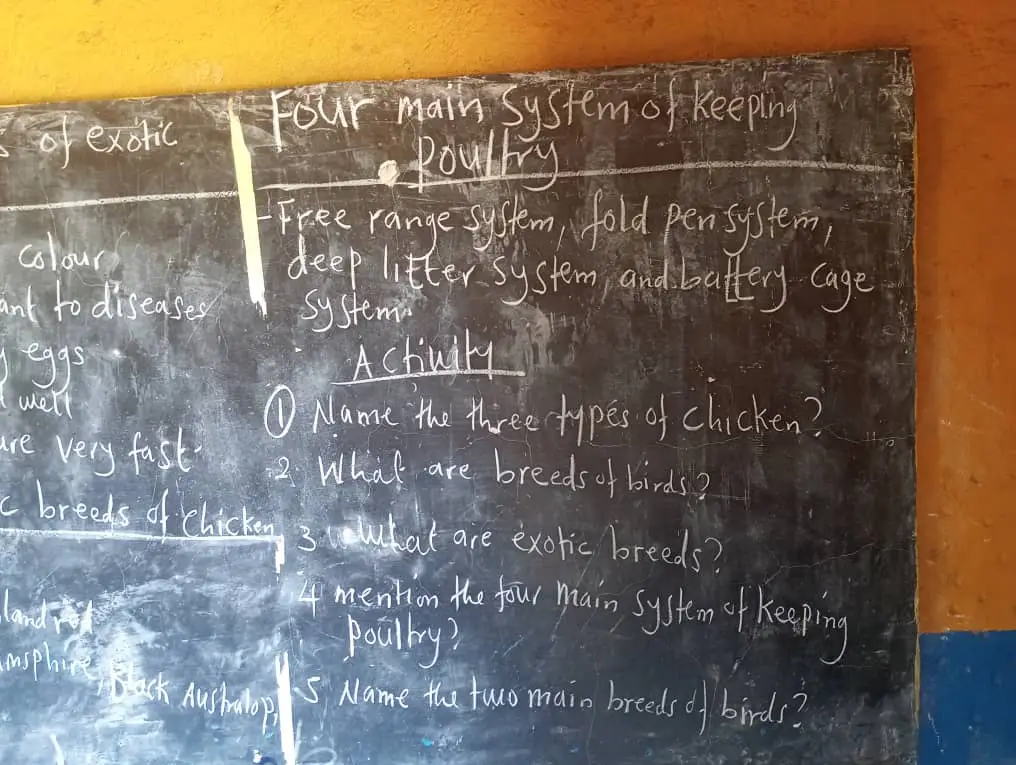 of exotic
colour
ant to diseases
eggs
well
ure very fast
c breeds of chicken
land red
msphire, Black Australop,
Four main system of keeping
poultry
- Free range system, fold pen system,
deep litter system, and battery cage
system.
Activity
① Name the three types of chicken?
2 What are breeds of birds?
3 What are exotic breeds?
4 mention the four main system of keeping
poultry?
5 Name the two main breeds of birds?